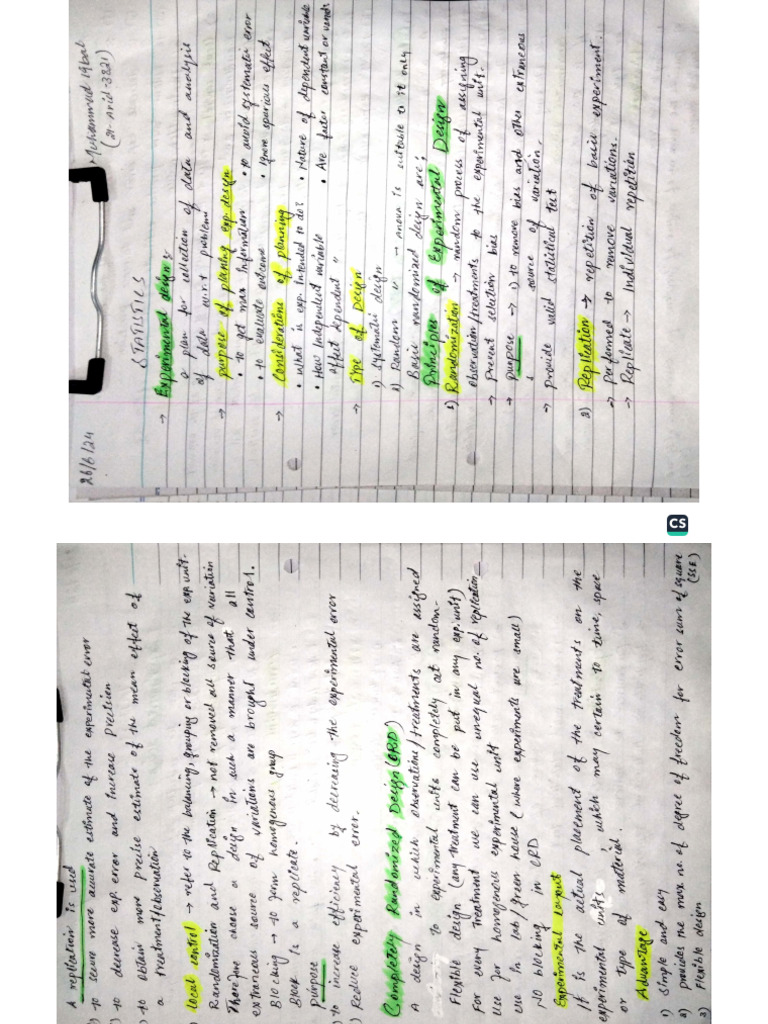 Muhammad Iqbal
(21-Arid-3321)
26/6/24
STATISTICS
→ Experimental designs
a plan for collection of data and analysis
of data w.r.t problem
→ purpose of planing exp. design
• To get max Information • To avoid systematic error
• to evaluate outcome • Ignore spurious effect.
→ Considerations of planning
• What is exp. intended to do? • Nature of dependent variable
• How Independent variable • Are factor constant or varies
affect dependent "
→ Type of Design
1) Systematic design
2) Random " → anova is suitable to it only
Basic randomized design are;
Principles of Experimental Design
1) Randomization → random process of assigning
observation/treatments to the experimental unit.
→ prevent selection bias
→ purpose → 1) to remove bias and other extraneous
source of variation.
→ provide valid statistical test
2) Replication → repetition of basic experiment.
→ performed to remove variations.
→ Replicate → Individual repetition
A replication is used
) to secure more accurate estimate of the experimental error
) to decrease exp. error and increase precision
) to obtain more precise estimate of the mean effect of
a treatment/observation
) local control → refer to the balancing, grouping or blocking of the exp unit.
Randomization and Replication → not removed all source of variation
Therefore choose a design in such a manner that all
extraneous source of variations are brought under control.
Blocking → to form homogenous group
Block is a replicate.
purpose
) to increase efficiency by decreasing the experimental error
) Reduce experimental error.
Completely Randomized Design (CRD)
A design in which observation/treatments are assigned
to experimental units completely at random.
Flexible design (any treatment can be put in any exp.unit)
For every treatment we can use unequal no. of replication
Use for homogenous experimental unit
Use in lab/green house (where experiments are small)
No blocking in CRD
Experimental Layout
It is the actual placement of the treatments on the
experimental units, which may certain to time, space
or type of material.
Advantage
1) Simple and easy
2) provides the max no. of degree of freedom for error sum of square
(SSE)
3) Flexible design
CS